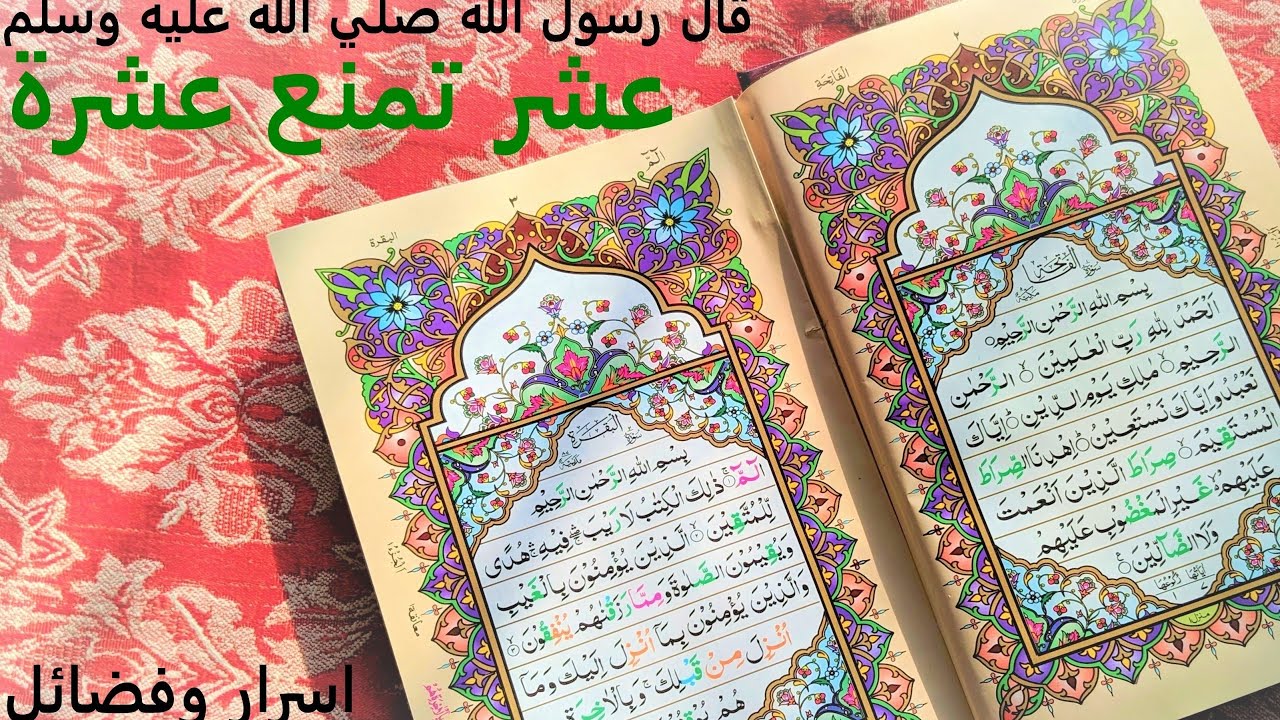 قال رسول الله صلي الله عليه وسلم
عشر تمنع عشرة
٢
الفاتحة
سورة الفاتحة
بسم الله الرحمن الرحيم
اَلْحَمْدُ لِلّٰهِ رَبِّ الْعٰلَمِيْنَ الرَّحْمٰنِ
الرَّحِيْمِ مٰلِكِ يَوْمِ الدِّيْنِ اِيَّاكَ
نَعْبُدُ وَاِيَّاكَ نَسْتَعِيْنُ اِهْدِنَا الصِّرَاطَ
الْمُسْتَقِيْمَ صِرَاطَ الَّذِيْنَ اَنْعَمْتَ
عَلَيْهِمْ غَيْرِ الْمَغْضُوْبِ عَلَيْهِمْ
وَلَا الضَّآلِّيْنَ
الٓمّٓ
٣
البقرة
سورة البقرة
بِسْمِ اللهِ الرَّحْمٰنِ الرَّحِيْمِ
الٓمّٓ ذٰلِكَ الْكِتٰبُ لَا رَيْبَ فِيْهِ هُدًى
لِّلْمُتَّقِيْنَ الَّذِيْنَ يُؤْمِنُوْنَ بِالْغَيْبِ
وَيُقِيْمُوْنَ الصَّلٰوةَ وَمِمَّا رَزَقْنٰهُمْ يُنْفِقُوْنَ
وَالَّذِيْنَ يُؤْمِنُوْنَ بِمَآ اُنْزِلَ اِلَيْكَ وَمَآ
اُنْزِلَ مِنْ قَبْلِكَ وَبِالْاٰخِرَةِ
اسرار وفضائل